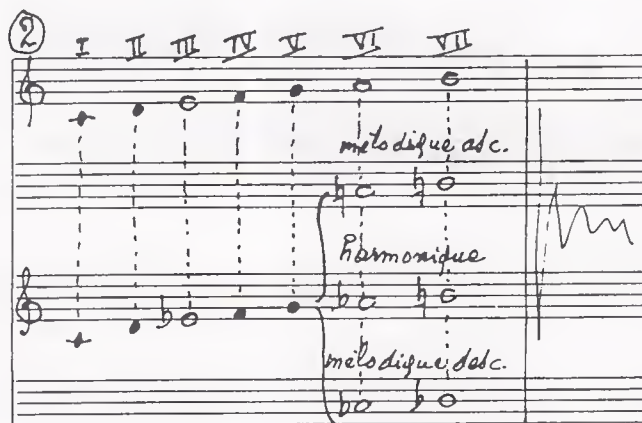 2
I II III IV V VI VII
mélodique asc.
harmonique
mélodique desc.